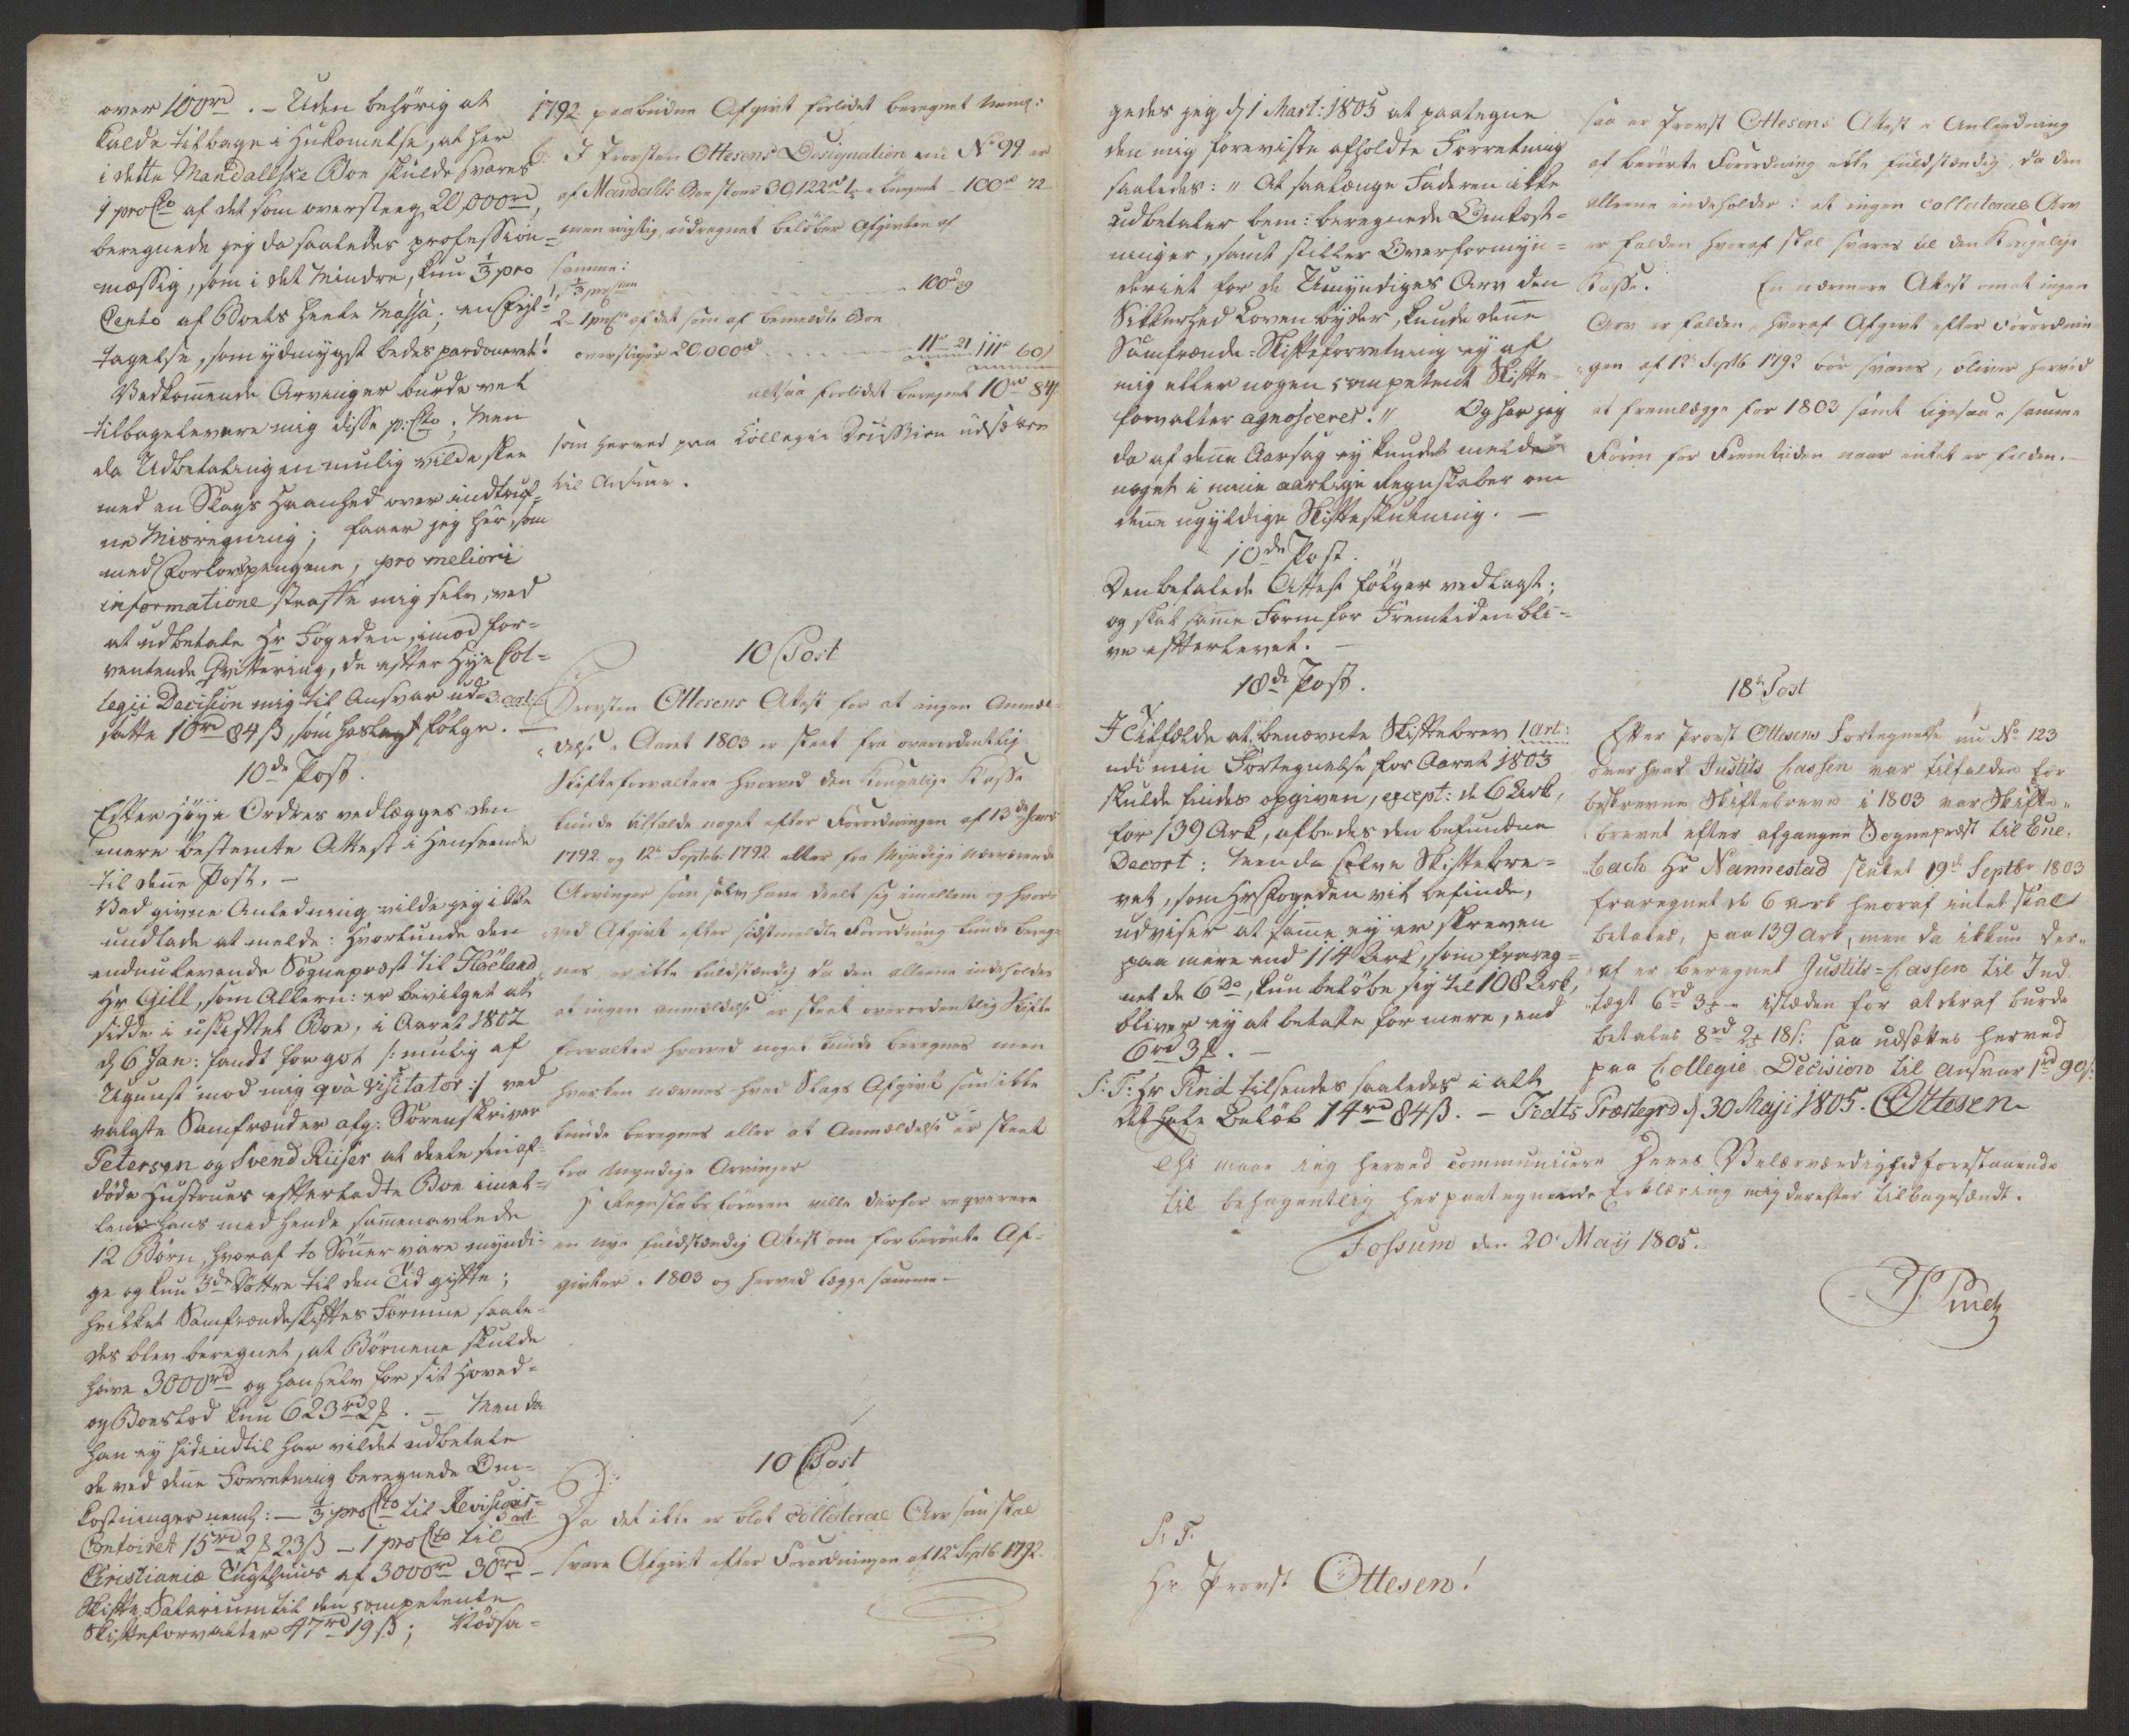 over 100rd. – Uden behörig at
kalde tilbage i Hukommelse, at her
i dette Mandallske Boe skulde svares
1 proCto af det som oversteeg 20,000rd,
beregnede jeg da saaledes profession-
mæssig, som i det mindre, kun 1/3 pro
Cento af Boets heele Massa; en Feyl-
tagelse, som ydmygst bedes pardoneret!
Vedkommende Arvinger burde vel
tilbagelevere mig disse p:Cto; Men
da Udbetalingen mulig vilde skee
med en Slags Haanhed over indtruf-
ne Misregning; faaer jeg her, som
med Forlovspengene, pro meliori
informatione straffe mig selv, ved
at udbetale Hr Fogeden, imod for-
ventende Qvittering, de efter Höye Col-
legii Decision mig til Ansvar ud-
satte 10rd 84ß, som hoslagt fölger. –
10de Post.
Efter Höye Ordres vedlægges den
mere bestemte Attest i Henseende
til denne Post. –
Ved given Anledning vilde jeg ikke
undlade at melde: Hvorlunde den
endnu levende Sognepræst til Höeland
Hr Gill, som Allern: er bevilget at
sidde i uskiftet Boe, i Aaret 1802
d 6 Jan: fandt for got /: mulig af
Ugunst mod mig qvà Visitator :/ ved
valgte Samfrænder afg: Sorenskriver
Petersen og Svend Riiser at deele sin af-
döde Hustrues efterladte Boe imel-
lem hans med hende sammenavlede
12 Börn, hvoraf to Sönner vare myndi-
ge og kun 3de Döttre til den Tid gifte;
hvilket Samfrændeskiftes Formue saale-
des blev beregnet, at Börnene skulde
have 3000rd og han selv for sit Hoved-
og Boeslod kun 623rd 2 . – Men da
han ey hidindtil har vildet udbetale
de ved denne Forretning beregnede Om-
kostninger neml: – 1/3 proCto til Revisions-
Contoiret 15rd 2 23ß – 1 proCto til
Christianiæ Tugthuus af 3000rd 30rd –
Skifte-Salarium til den competente
Skifteforvalter 47rd 19ß; Nödsa-
1792 paabudne Afgivt forlidet beregnet neml:
I Provsten Ottesens Designation nu No 99 er
af Mandalls Boe stoer 30,122rd beregnet – 100rd 72
men rigtig udregnet belöber Afgivten af
samme:
1/3 proCten 100rd 39
2 – 1 proCto af det som af bemeldte Boe
overstiger 20.000rd 11rd 21 111rd 60ß
altsaa forlidet beregnet 10rd 84ß
som herved paa Collegii Decision udsættes
til Ansvar.
10 Post
3 art:
Provsten Ottesens Attest for at ingen Anmæl-
delse i Aaret 1803 er skeet fra overordentlig
Skifteforvaltere hvorved den Kongelige Kasse
kunde tilfalde noget efter Forordningen af 13de Janr
1792 og 12te Septbr: 1792 eller fra myndige nærværende
Arvinger som selv have deelt sig imellem og hvor-
ved Afgivt efter sidstmeldte Forordning kunde bereg-
nes er ikke fuldstændig da den alleene indeholder
at ingen anmældelse er skeet overordentlig Skifte
forvalter hvorved noget kunde beregnes men
hverken nævnes hvad Slags Afgivt som ikke
kunde beregnes eller at Anmældelse er skeet
fra myndige Arvinger
Hr Regnskabsföreren ville derfor reqverere
en nye fuldstændig Attest om forberörte Af-
givter i 1803 og herved lægge samme –
10 Post
3 art:
Da det ikke er blot collaterae Arv som skal
svare Afgivt efter Forordningen af 12te Septb 1792
gedes jeg d 1 Mart: 1805 at paategne
den mig foreviste afholdte Forretning
saaledes: „ At saalænge Faderen ikke
udbetaler bem: beregnede Omkost-
ninger, samt stiller Overformyn-
deriet for de Umyndiges Arv den
Sikkerhed Loven byder, kunde denne
Samfrænde-Skifteforretning ey af
mig eller nogen competent Skifte-
forvalter agnosceres.“ Og har jeg
da af denne Aarsag ey kundet melde
noget i mine aarlige Regnskaber om
denne ugyldige Skifteslutning. –
10de Post.
Den befalede Attest fölger vedlagt;
og skal samme Form for Fremtiden bli-
ve efterlevet. –
18de Post.
I Tilfælde at benævnte Skiftebrev 1 art:
udi min Fortegnelse for Aaret 1803
skulde findes opgiven, except: de 6 Ark,
for 139 Ark, afbedes den befundne
Decort: Men da selve Skiftebre-
vet, som Hr Fogeden vil befinde,
udviser at samme ey er skreven
paa mere end 114 Ark, som frareg-
net de 6 do, kun belöbe sig til 108 Ark,
bliver ey at betale for mere, end
6rd 3 . –
S: T: Hr Find tilsendes saaledes i alt
det hele Belöb 14rd 84ß. – Fedts Præstegrd d 30 Maji 1805. Ottesen
saa er Provst Ottesens Attest i Anledning
af berörte Forordning ikke fuldstændig, da den
alleene indeholder: at ingen collaterae Arv
er falden hvoraf skal svares til den Kongelige
Kasse. En nærmere Attest om at ingen
Arv er falden, hvoraf Afgivt efter Forordnin-
gen af 12te Septb 1792 bör svares, bliver herved
at fremlægge for 1803 samt ligesaa i samme
Form for Fremtiden naar intet er falden. –
18de Post
Efter Provst Ottesens Fortegnelse nu No 123
over hvad Justits Cassen var tilfalden for
beskrevne Skiftebreve i 1803 var Skifte-
brevet efter afgangne Sognepræst til Ene-
bach Hr Nannestad sluttet 19de Septbr 1803
fraregnet de 6 Ark hvoraf intet skal
betales, paa 139 Ark, men da ikkun der-
af er beregnet Justits-Cassen til Ind-
tægt 6rd 3 – istæden for at deraf burde
betales 8rd 2 18ß: saa udsættes herved
paa Collegie Decision til Ansvar 1rd 90ß
maae jeg herved communicere Deres Velærværdighed forestaaende
til behagentlig herpaategnende Erklæring mig derefter tilbagesændt.
Fossum den 20 Maij 1805.
S. T.
Hr Provst Ottesen!